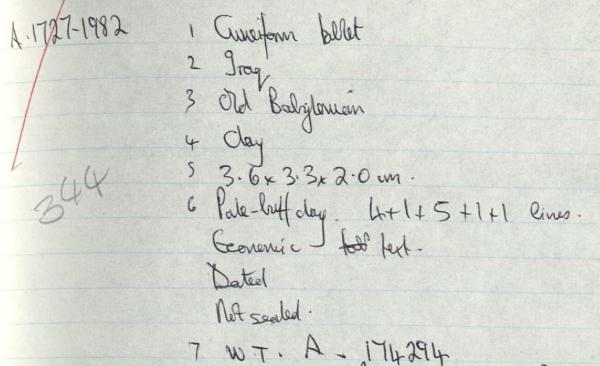 A.1727-1982 1 Cuneiform tablet
2 Iraq
3 Old Babylonian
4 Clay
5 3.6 x 3.3 x 2.0 cm.
344
6 Pale-buff clay. 4+1+5+1+1 lines.
Economic text.
Dated
Not sealed.
7 W.T. A. 174294